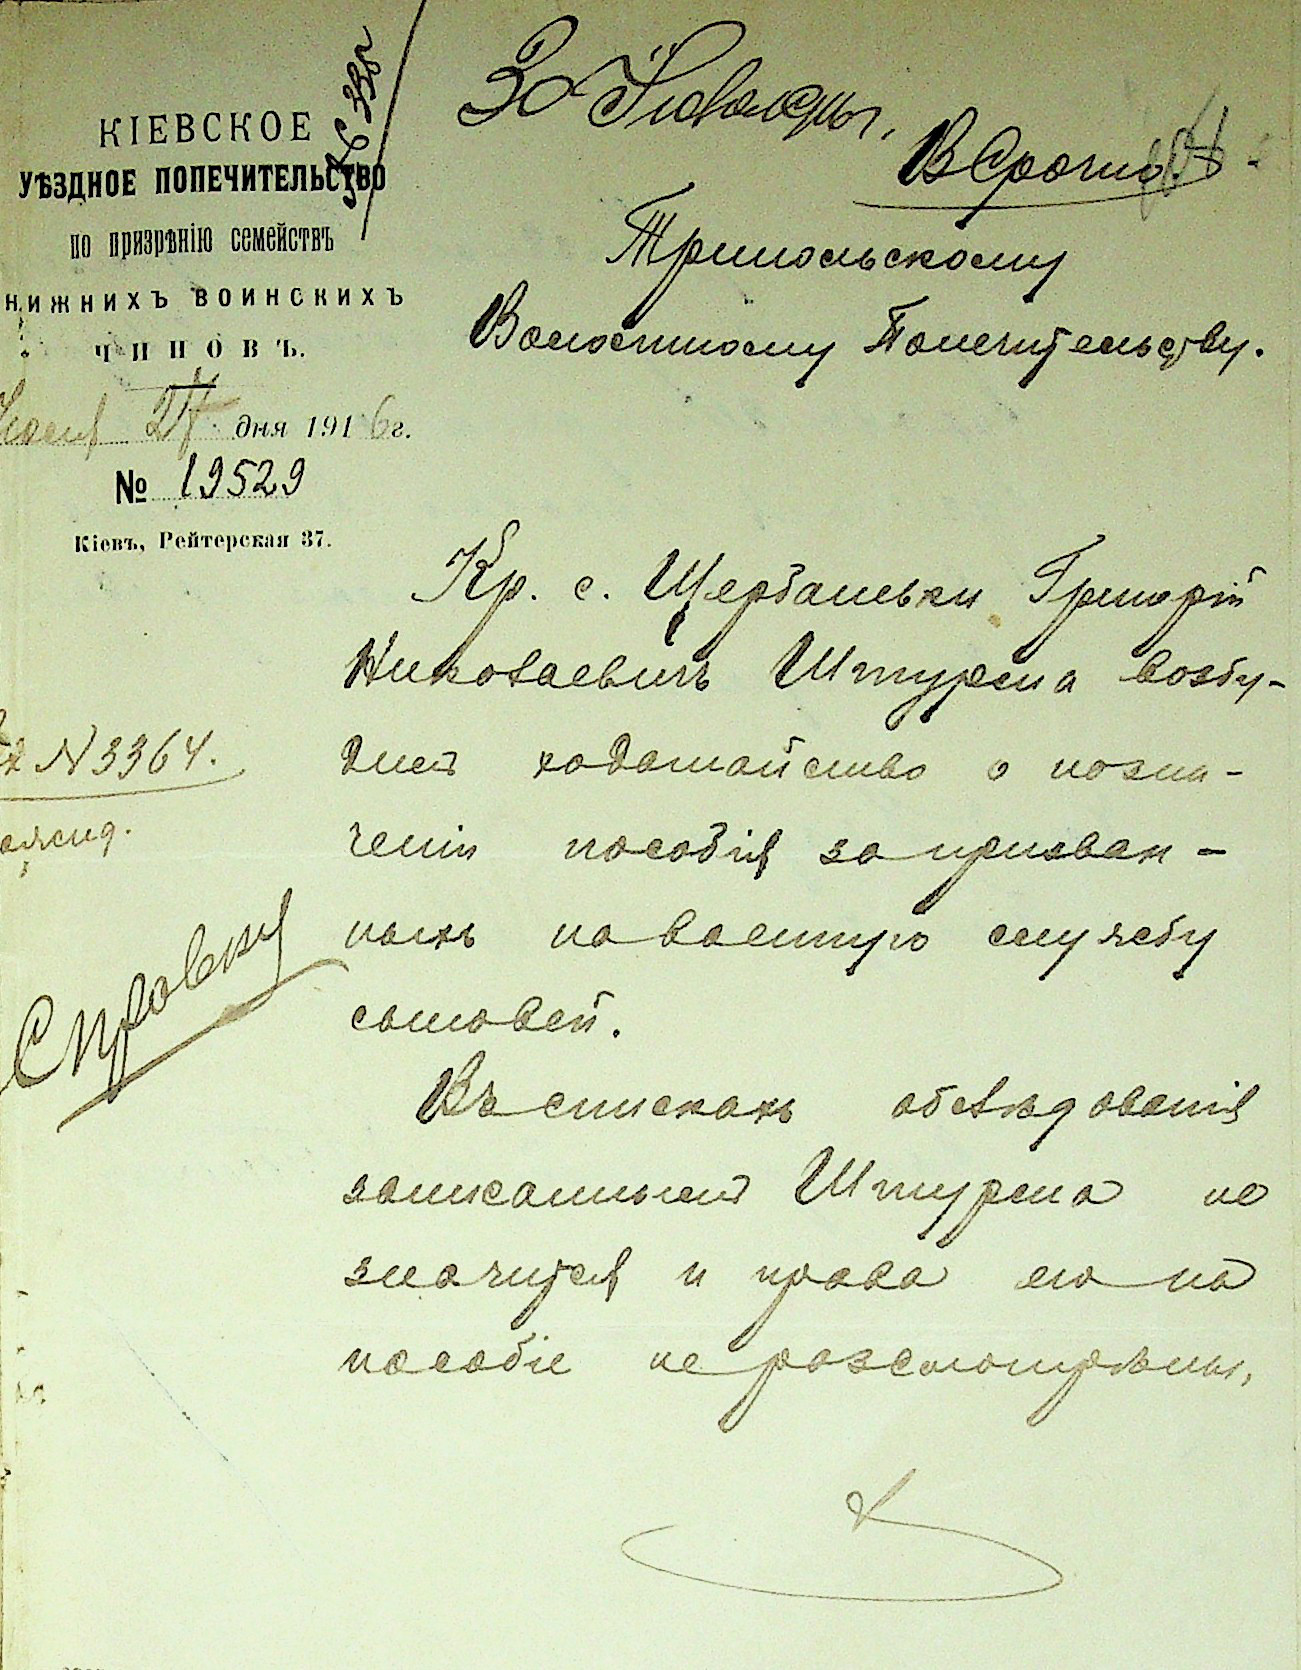 КІЕВСКОЕ
УѢЗДНОЕ ПОПЕЧИТЕЛЬСТВО
по призрѣнію семействъ
нижнихъ воинскихъ
чиновъ.
27 дня 1916 г.
№ 19529
Кіевъ, Рейтерская 37.
30
Срочно
Трипольскому
Волостному Попечительству.
Кр. с. Щербаневки Григорій
Николаевичъ Штурма возбу-
дилъ ходатайство о назна-
ченіи пособія за призван-
ныхъ на военную службу
сыновей.
Въ спискахъ обслѣдованія
записаннымъ Штурма не
значится и права его на
пособіе не разсмотрѣны,
N 3364.
Справку